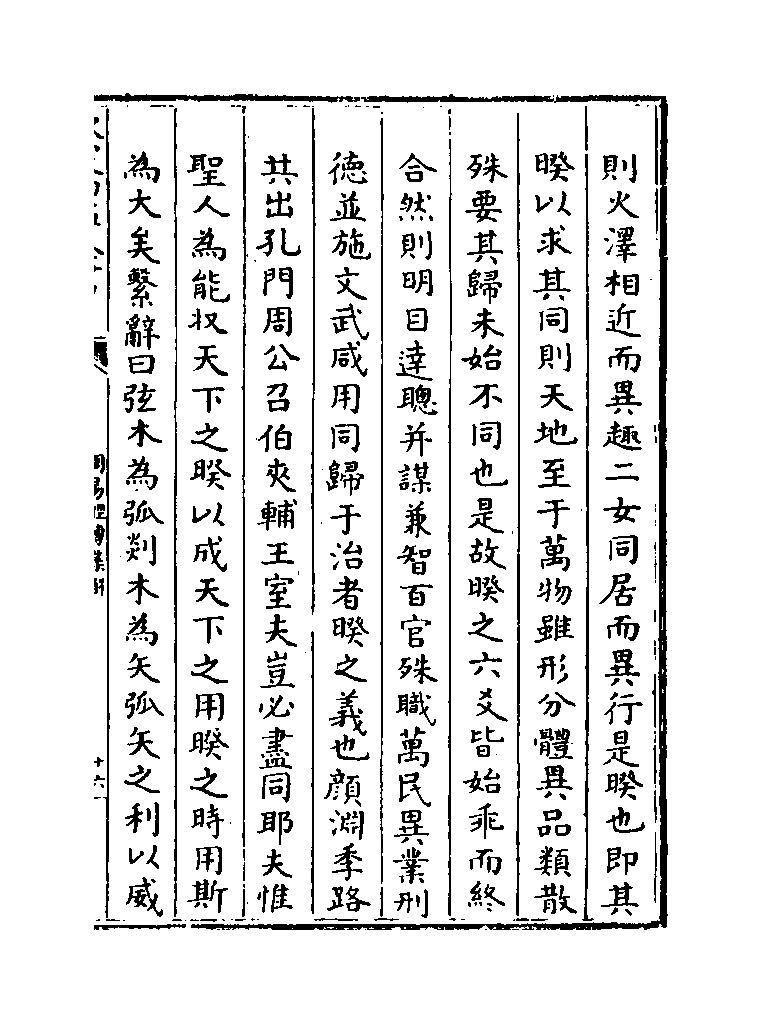 則火澤相近而異趣二女同居而異行是暌也即其
暌以求其同則天地至于萬物雖形分體異品類散
殊要其歸未始不同也是故暌之六爻皆始乖而終
合然則明目達聰并謀兼智百官殊職萬民異業刑
德並施文武咸用同歸于治者暌之義也顔淵季路
共出孔門周公召伯夾輔王室夫豈必盡同耶夫惟
聖人為能収天下之暌以成天下之用暌之時用斯
為大矣繫辭曰弦木為弧剡木為矢弧矢之利以威
周易經傳集解
十六